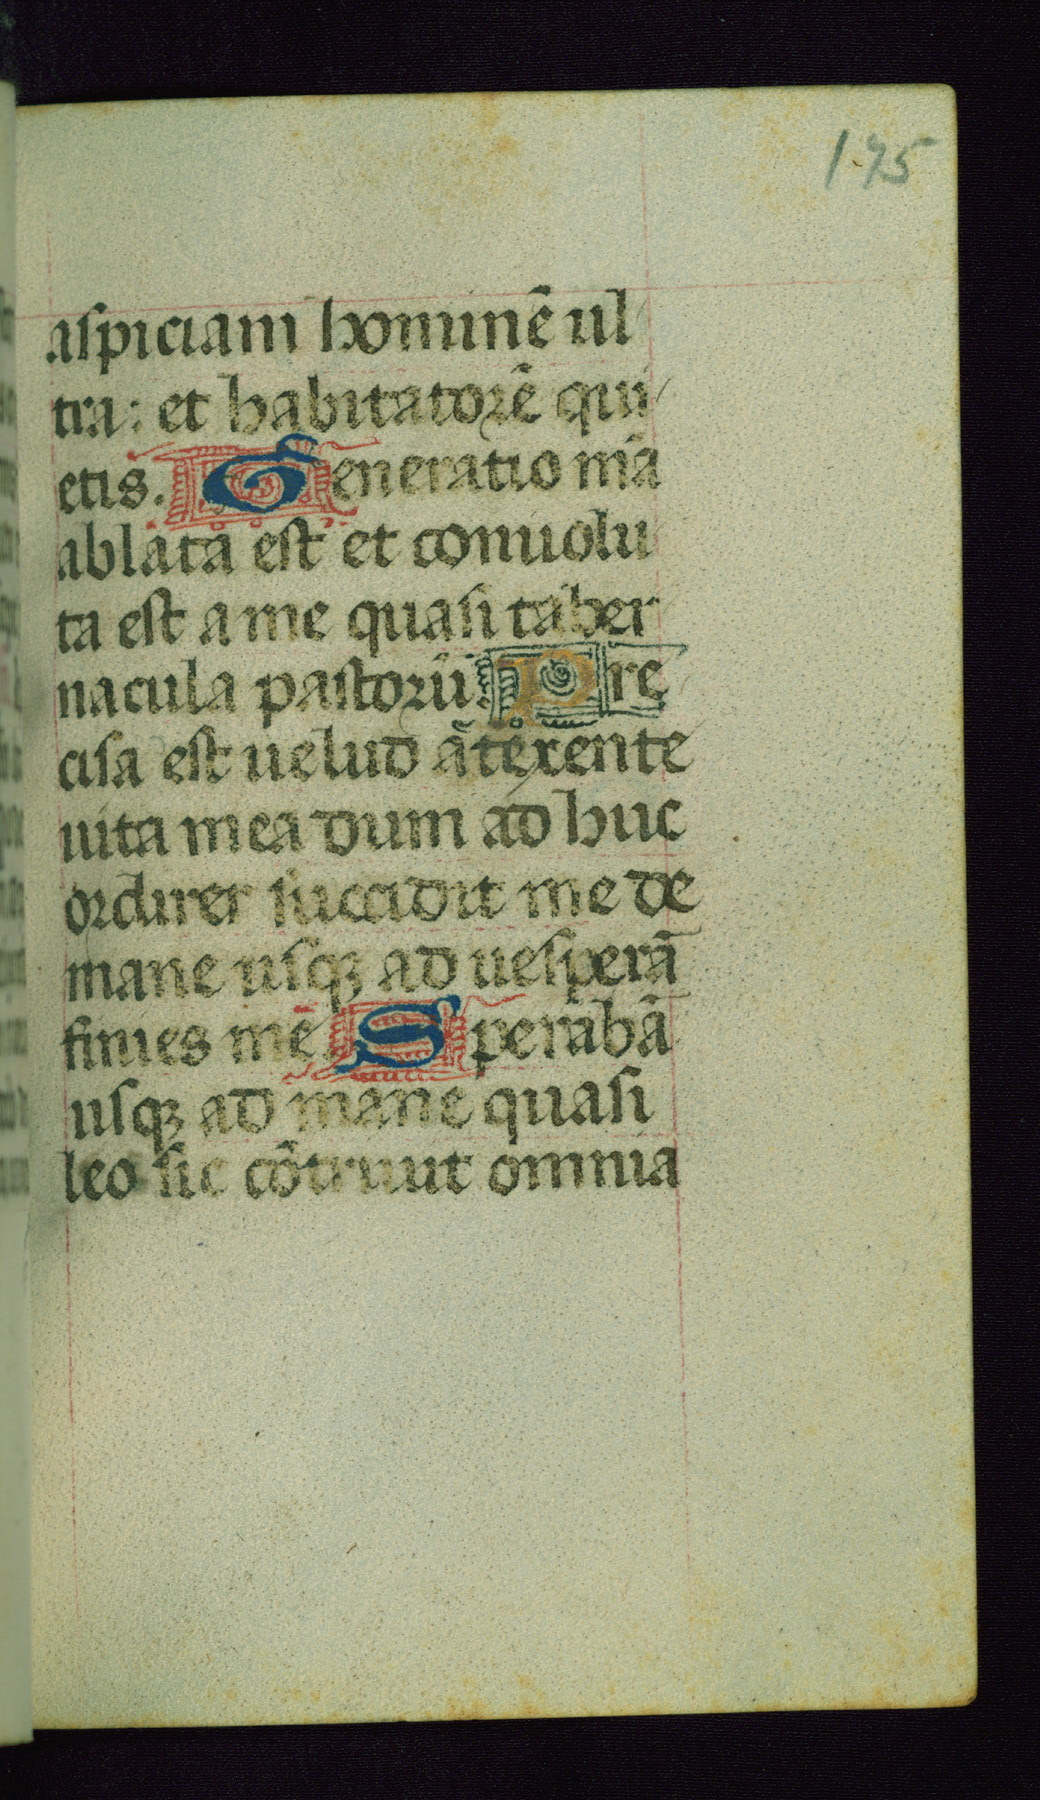 195
aspiciam hominē ul
tra: et habitatorē qui
etis. Generatio mā
ablata est et conuolu
ta est a me quasi taber
nacula pastorū. Pre
cisa est uelud ātexente
uita mea dum ad huc
ordirer succidit me de
mane usqꝫ ad uesperā
finies me. Sperabā
usqꝫ ad mane quasi
leo sic cōtriuit omnia